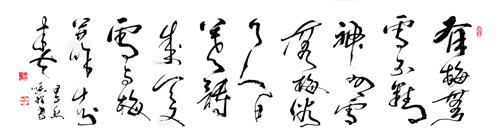 有梅無
雪不精
神有雪
無梅俗
了人日
暮詩
成天又
雪與梅
並作十分
春